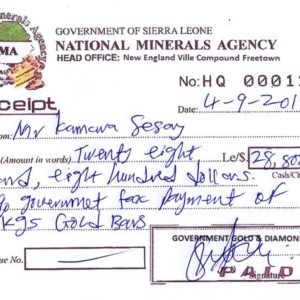 Minerals Agency
MA
GOVERNMENT OF SIERRA LEONE
NATIONAL MINERALS AGENCY
HEAD OFFICE: New England Ville Compound Freetown
No: HQ 00011
ceipt
Date 4-9-201
from Mr Kamara Sesay
(Amount in words) Twenty eight Le/$ 28,80
and, eight hundred dollars. Cash/Ch
% governmet tax payment of
kgs Gold Bars
GOVERNMENT GOLD & DIAMOND
ue No:
PAID
Signature